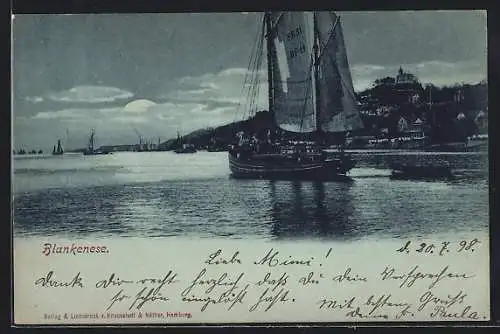 Blankenese.
d. 20. 7. 98.
Liebe Mimi!
Danke Dir recht herzlich, daß du dein Versprechen
so schön eingelöst hast. Mit besten Gruß
deine A. Paula.
Verlag & Lichtdruck v. Knackstedt & Näther, Hamburg.